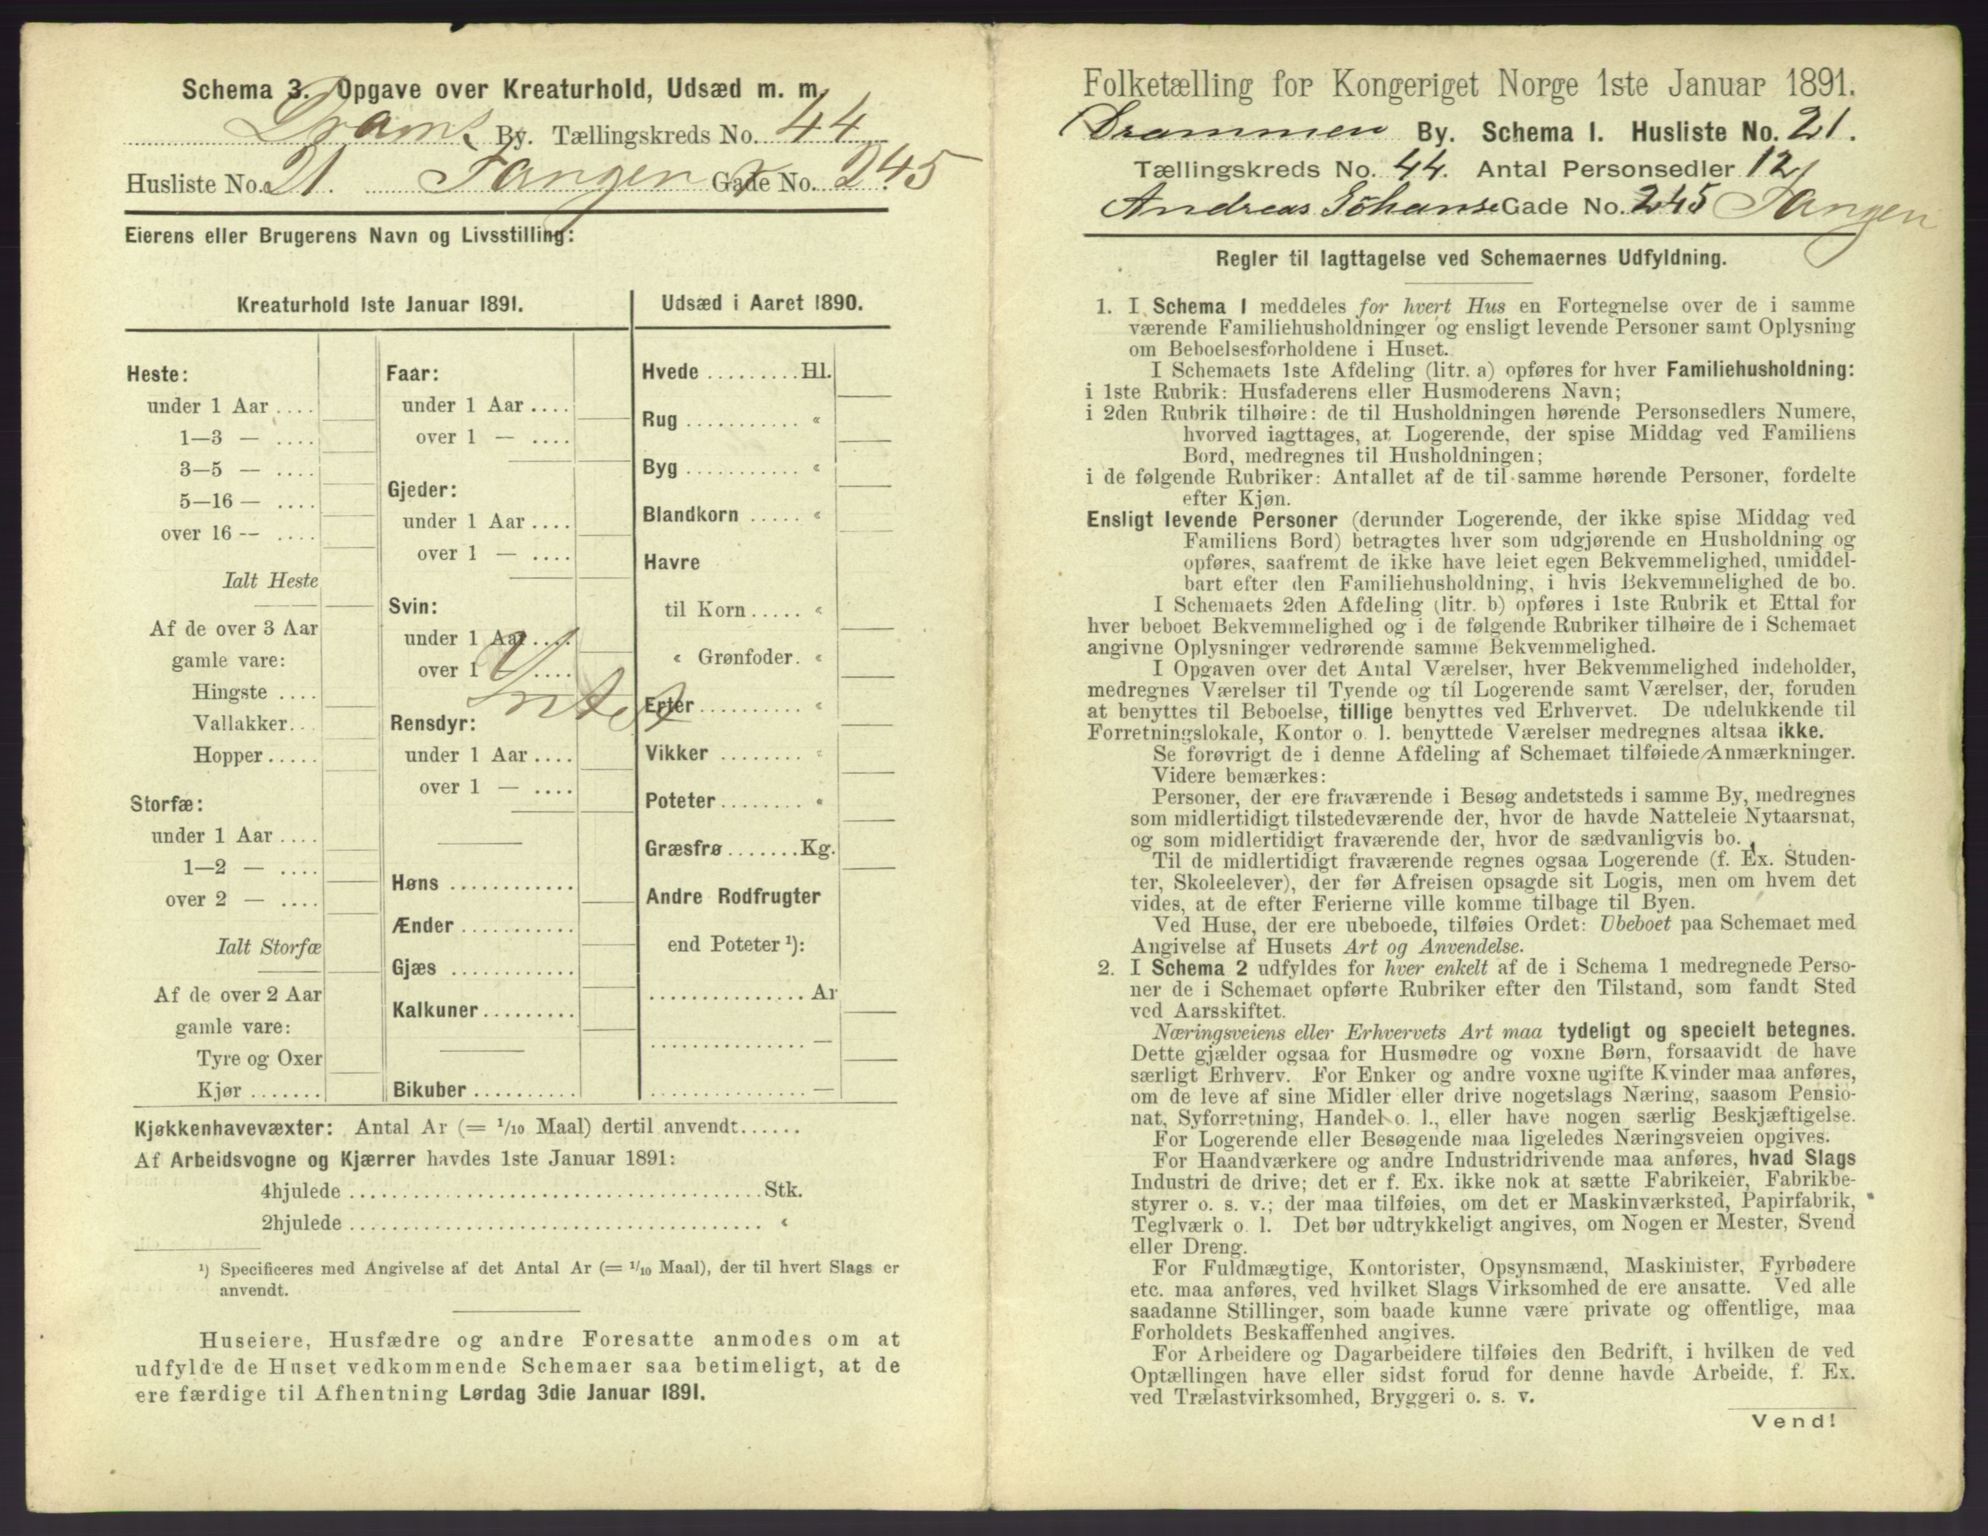 Schema 3. Opgave over Kreaturhold, Udsæd m. m.
Drams By. Tællingskreds No. 44
Husliste No. 21. Tangen Gade No. 245
Eierens eller Brugerens Navn og Livsstilling:
Kreaturhold 1ste Januar 1891.
Heste:
under 1 Aar ....
1—3 — ....
3—5 — ....
5—16 — ....
over 16 -- ....
Ialt Heste
Af de over 3 Aar
gamle vare:
Hingste ....
Vallakker...
Hopper.....
Storfæ:
under 1 Aar ....
1—2 — ....
over 2 — ....
Ialt Storfæ
Af de over 2 Aar
gamle vare:
Tyre og Oxer
Kjør .......
Faar:
under 1 Aar ....
over 1 — ....
Gjeder:
under 1 Aar ....
over 1 — ....
Svin:
under 1 Aar ....
over 1 ....
Intet
Rensdyr:
under 1 Aar ....
over 1 — ....
Høns ............
Ænder ...........
Gjæs ............
Kalkuner.........
Bikuber ..........
Udsæd i Aaret 1890.
Hvede .........Hl.
Rug ........... «
Byg ........... «
Blandkorn ..... «
Havre
til Korn ..... «
« Grønfoder. «
Erter .......... «
Vikker ........ «
Poteter........ «
Græsfrø .......Kg.
Andre Rodfrugter
end Poteter ¹):
............... Ar
............... —
............... —
Kjøkkenhavevæxter: Antal Ar (= 1/10 Maal) dertil anvendt......
Af Arbeidsvogne og Kjærrer havdes 1ste Januar 1891:
4hjulede ........................................Stk.
2hjulede ........................................ «
¹) Specificeres med Angivelse af det Antal Ar (= 1/10 Maal), der til hvert Slags er
anvendt.
Huseiere, Husfædre og andre Foresatte anmodes om at
udfylde de Huset vedkommende Schemaer saa betimeligt, at de
ere færdige til Afhentning Lørdag 3die Januar 1891.
Folketælling for Kongeriget Norge 1ste Januar 1891.
Drammen By. Schema 1. Husliste No. 21.
Tællingskreds No. 44. Antal Personsedler 12
Andreas Johanse Gade No. 245 Tangen
Regler til Iagttagelse ved Schemaernes Udfyldning.
1. I Schema 1 meddeles for hvert Hus en Fortegnelse over de i samme
værende Familiehusholdninger og ensligt levende Personer samt Oplysning
om Beboelsesforholdene i Huset.
I Schemaets 1ste Afdeling (litr. a) opføres for hver Familiehusholdning:
i 1ste Rubrik: Husfaderens eller Husmoderens Navn;
i 2den Rubrik tilhøire: de til Husholdningen hørende Personsedlers Numere,
hvorved iagttages, at Logerende, der spise Middag ved Familiens
Bord, medregnes til Husholdningen;
i de følgende Rubriker: Antallet af de til samme hørende Personer, fordelte
efter Kjøn.
Ensligt levende Personer (derunder Logerende, der ikke spise Middag ved
Familiens Bord) betragtes hver som udgjørende en Husholdning og
opføres, saafremt de ikke have leiet egen Bekvemmelighed, umiddel-
bart efter den Familiehusholdning, i hvis Bekvemmelighed de bo.
I Schemaets 2den Afdeling (litr. b) opføres i 1ste Rubrik et Ettal for
hver beboet Bekvemmelighed og i de følgende Rubriker tilhøire de i Schemaet
angivne Oplysninger vedrørende samme Bekvemmelighed.
I Opgaven over det Antal Værelser, hver Bekvemmelighed indeholder,
medregnes Værelser til Tyende og til Logerende samt Værelser, der, foruden
at benyttes til Beboelse, tillige benyttes ved Erhvervet. De udelukkende til
Forretningslokale, Kontor o. l. benyttede Værelser medregnes altsaa ikke.
Se forøvrigt de i denne Afdeling af Schemaet tilføiede Anmærkninger.
Videre bemærkes:
Personer, der ere fraværende i Besøg andetsteds i samme By, medregnes
som midlertidigt tilstedeværende der, hvor de havde Natteleie Nytaarsnat,
og som midlertidigt fraværende der, hvor de sædvanligvis bo.
Til de midlertidigt fraværende regnes ogsaa Logerende (f. Ex. Studen-
ter, Skoleelever), der før Afreisen opsagde sit Logis, men om hvem det
vides, at de efter Ferierne ville komme tilbage til Byen.
Ved Huse, der ere ubeboede, tilføies Ordet: Ubeboet paa Schemaet med
Angivelse af Husets Art og Anvendelse.
2. I Schema 2 udfyldes for hver enkelt af de i Schema 1 medregnede Perso-
ner de i Schemaet opførte Rubriker efter den Tilstand, som fandt Sted
ved Aarsskiftet.
Næringsveiens eller Erhvervets Art maa tydeligt og specielt betegnes.
Dette gjælder ogsaa for Husmødre og voxne Børn, forsaavidt de have
særligt Erhverv. For Enker og andre voxne ugifte Kvinder maa anføres,
om de leve af sine Midler eller drive nogetslags Næring, saasom Pensio-
nat, Syforretning, Handel o. l., eller have nogen særlig Beskjæftigelse.
For Logerende eller Besøgende maa ligeledes Næringsveien opgives.
For Haandværkere og andre Industridrivende maa anføres, hvad Slags
Industri de drive; det er f. Ex. ikke nok at sætte Fabrikeier, Fabrikbe-
styrer o. s. v.; der maa tilføies, om det er Maskinværksted, Papirfabrik,
Teglværk o. l. Det bør udtrykkeligt angives, om Nogen er Mester, Svend
eller Dreng.
For Fuldmægtige, Kontorister, Opsynsmænd, Maskinister, Fyrbødere
etc. maa anføres, ved hvilket Slags Virksomhed de ere ansatte. Ved alle
saadanne Stillinger, som baade kunne være private og offentlige, maa
Forholdets Beskaffenhed angives.
For Arbeidere og Dagarbeidere tilføies den Bedrift, i hvilken de ved
Optællingen have eller sidst forud for denne havde Arbeide, f. Ex.
ved Trælastvirksomhed, Bryggeri o. s. v.
Vend!